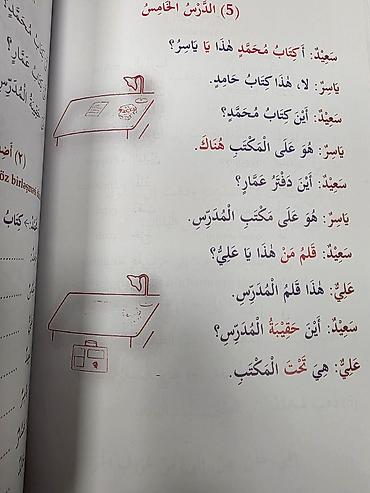 (5) الدَّرْسُ الْخَامِسُ
سَعِيْدٌ: أَكِتَابُ مُحَمَّدٍ هٰذَا يَا يَاسِرُ؟
يَاسِرٌ: لا، هٰذَا كِتَابُ حَامِدٍ.
سَعِيْدٌ: أَيْنَ كِتَابُ مُحَمَّدٍ؟
يَاسِرٌ: هُوَ عَلَى الْمَكْتَبِ هُنَاكَ.
سَعِيْدٌ: أَيْنَ دَفْتَرُ عَمَّارٍ؟
يَاسِرٌ: هُوَ عَلَى مَكْتَبِ الْمُدَرِّسِ.
سَعِيْدٌ: قَلَمُ مَنْ هٰذَا يَا عَلِيُّ؟
عَلِيٌّ: هٰذَا قَلَمُ الْمُدَرِّسِ.
سَعِيْدٌ: أَيْنَ حَقِيْبَةُ الْمُدَرِّسِ؟
عَلِيٌّ: هِيَ تَحْتَ الْمَكْتَبِ.